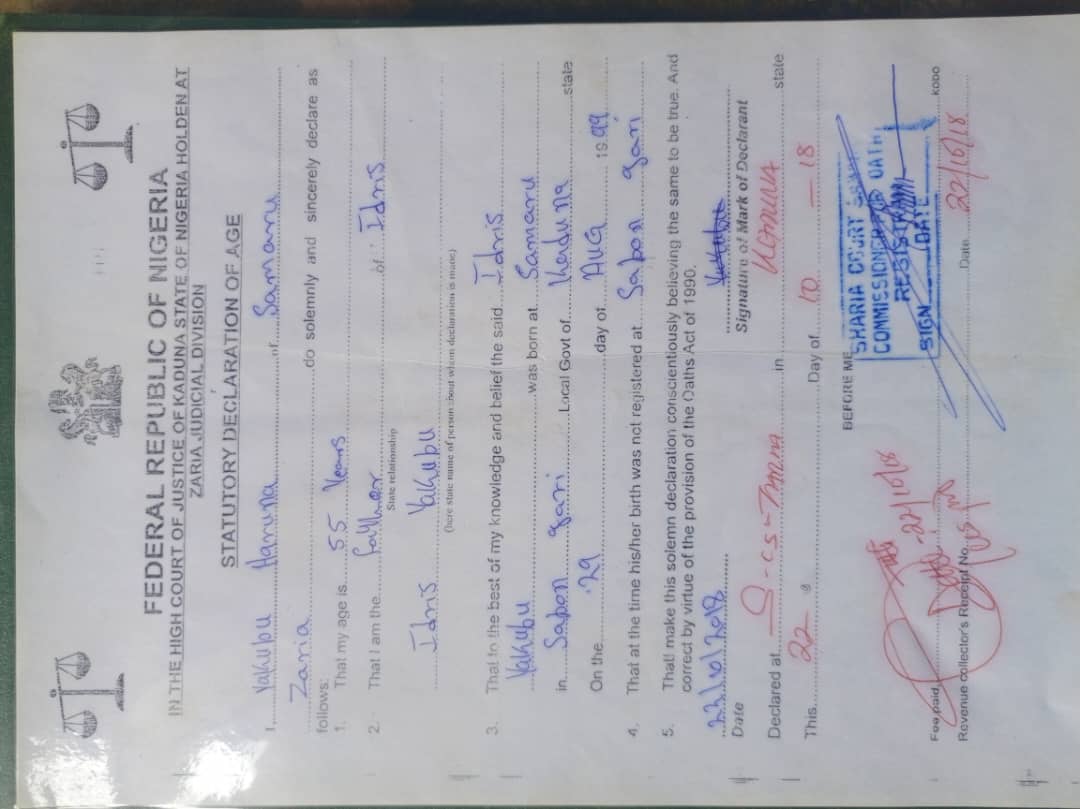 FEDERAL REPUBLIC OF NIGERIA
IN THE HIGH COURT OF JUSTICE OF KADUNA STATE OF NIGERIA HOLDEN AT
ZARIA JUDICIAL DIVISION
STATUTORY DECLARATION OF AGE
I Yakubu Haruna of Samaru
Zaria do solemnly and sincerely declare as
follows:
1. That my age is 55 Years
2. That I am the father of: Idris
State relationship
Idris Yakubu
(here state name of person about whom declaration is made)
3. That to the best of my knowledge and belief the said Idris
Yakubu was born at Samaru
in Sabon gari Local Govt of Kaduna state
On the 29 day of AUG 19 99
4. That at the time his/her birth was not registered at Sabon gari
5. That I make this solemn declaration conscientiously believing the same to be true. And
correct by virtue of the provision of the Oaths Act of 1990.
22/10/2018 Yakubu
Date Signature of Mark of Declarant
Declared at in state
This 22 Day of 10 18
BEFORE ME
SHARIA COURT
COMMISSIONER OATH
REGISTRAR
SIGN DATE
22/10/18
Fee paid KOBO
Revenue collector's Receipt No. Date 22/10/18